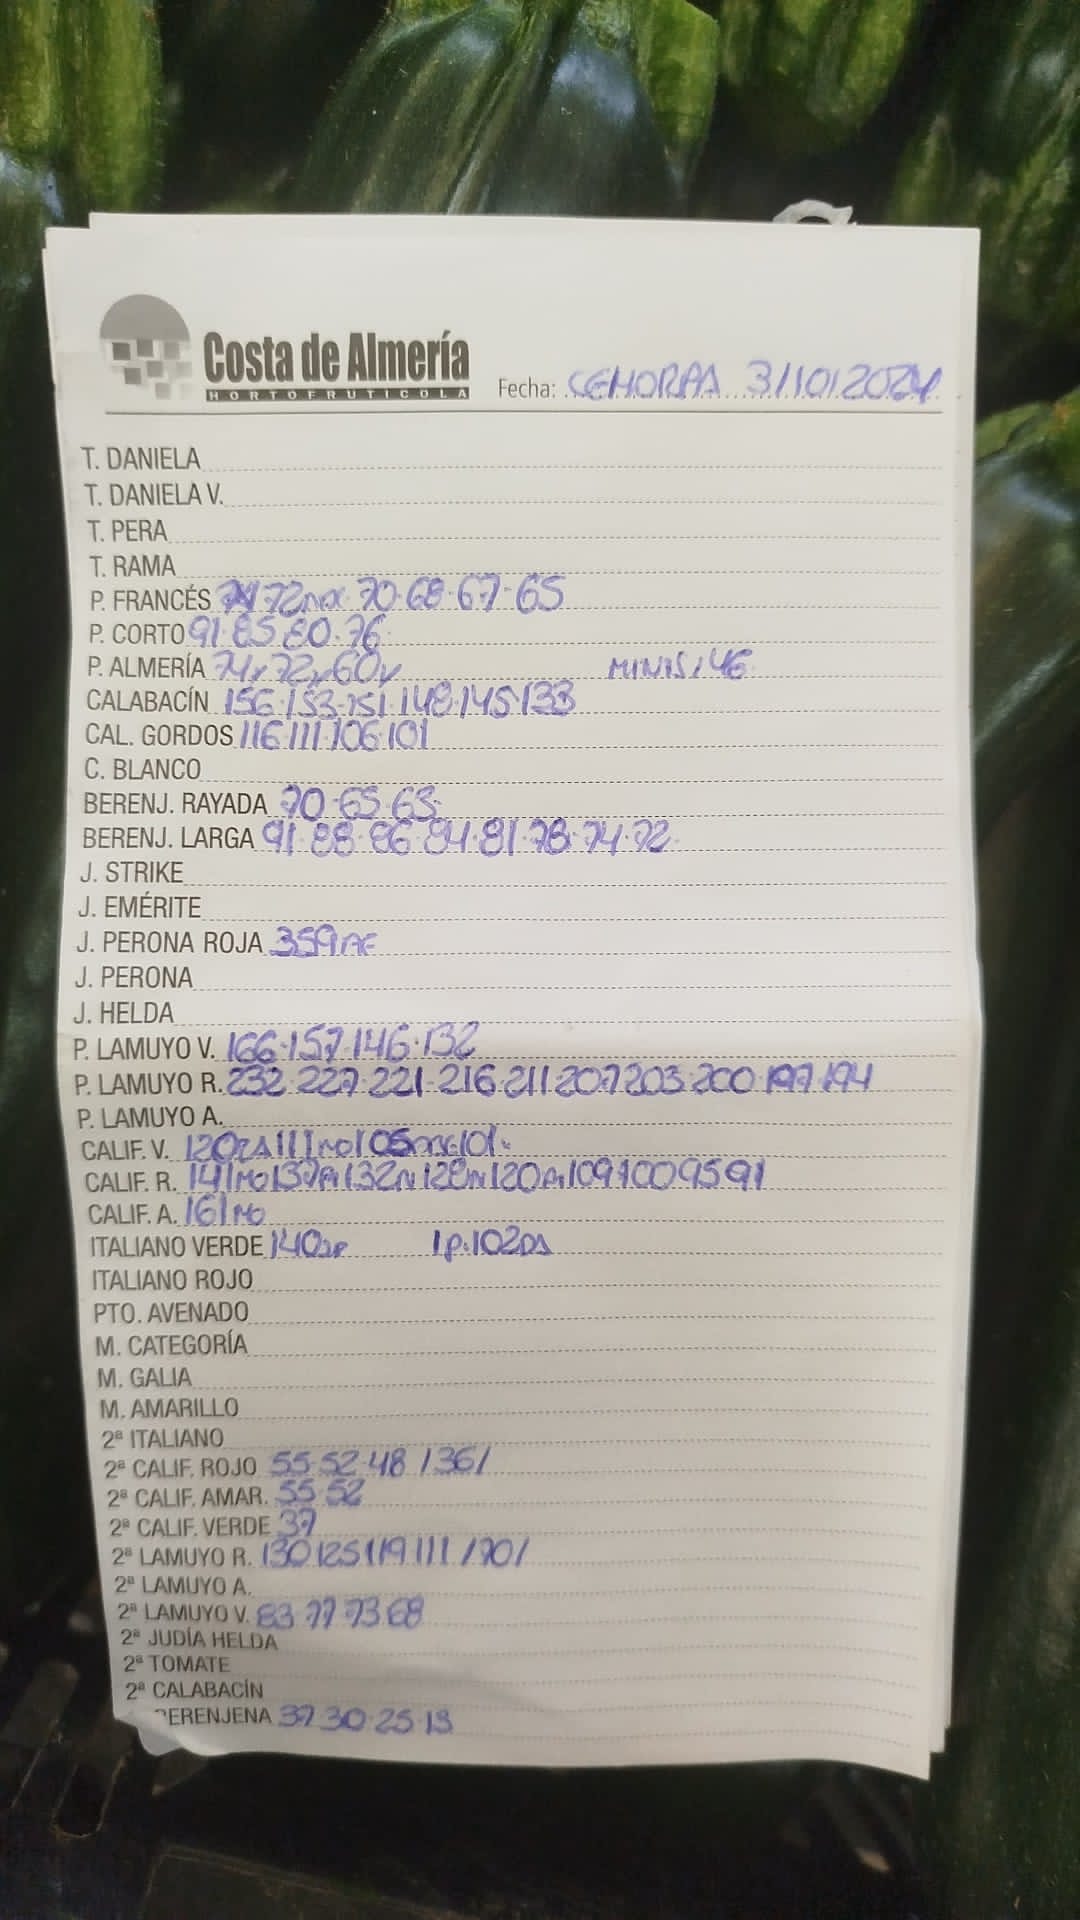 Costa de Almería
HORTOFRUTICOLA
Fecha: CEHORPA 3/10/2024
T. DANIELA
T. DANIELA V.
T. PERA
T. RAMA
P. FRANCÉS 72 70·68·67·65
P. CORTO 91·85 80·76
P. ALMERÍA 74y 72y 60y MINIS/46
CALABACÍN 156·153·151 148·145·133
CAL. GORDOS 116·111·106·101
C. BLANCO
BERENJ. RAYADA 70·65·63
BERENJ. LARGA 91·88·86·84·81·78·74·72
J. STRIKE
J. EMÉRITE
J. PERONA ROJA 359
J. PERONA
J. HELDA
P. LAMUYO V. 166·157·146·132
P. LAMUYO R. 232·227·221·216·211 207 203·200 197 194
P. LAMUYO A.
CALIF. V. 120 111 105 101
CALIF. R. 141 137 132 128 120 109 100 95 91
CALIF. A. 161
ITALIANO VERDE 140 1P. 102
ITALIANO ROJO
PTO. AVENADO
M. CATEGORÍA
M. GALIA
M. AMARILLO
2ª ITALIANO
2ª CALIF. ROJO 55 52·48 /36/
2ª CALIF. AMAR. 55 52
2ª CALIF. VERDE 37
2ª LAMUYO R. 130 125 119 111 /70/
2ª LAMUYO A.
2ª LAMUYO V. 83 77 73 68
2ª JUDÍA HELDA
2ª TOMATE
2ª CALABACÍN
BERENJENA 37 30·25·13